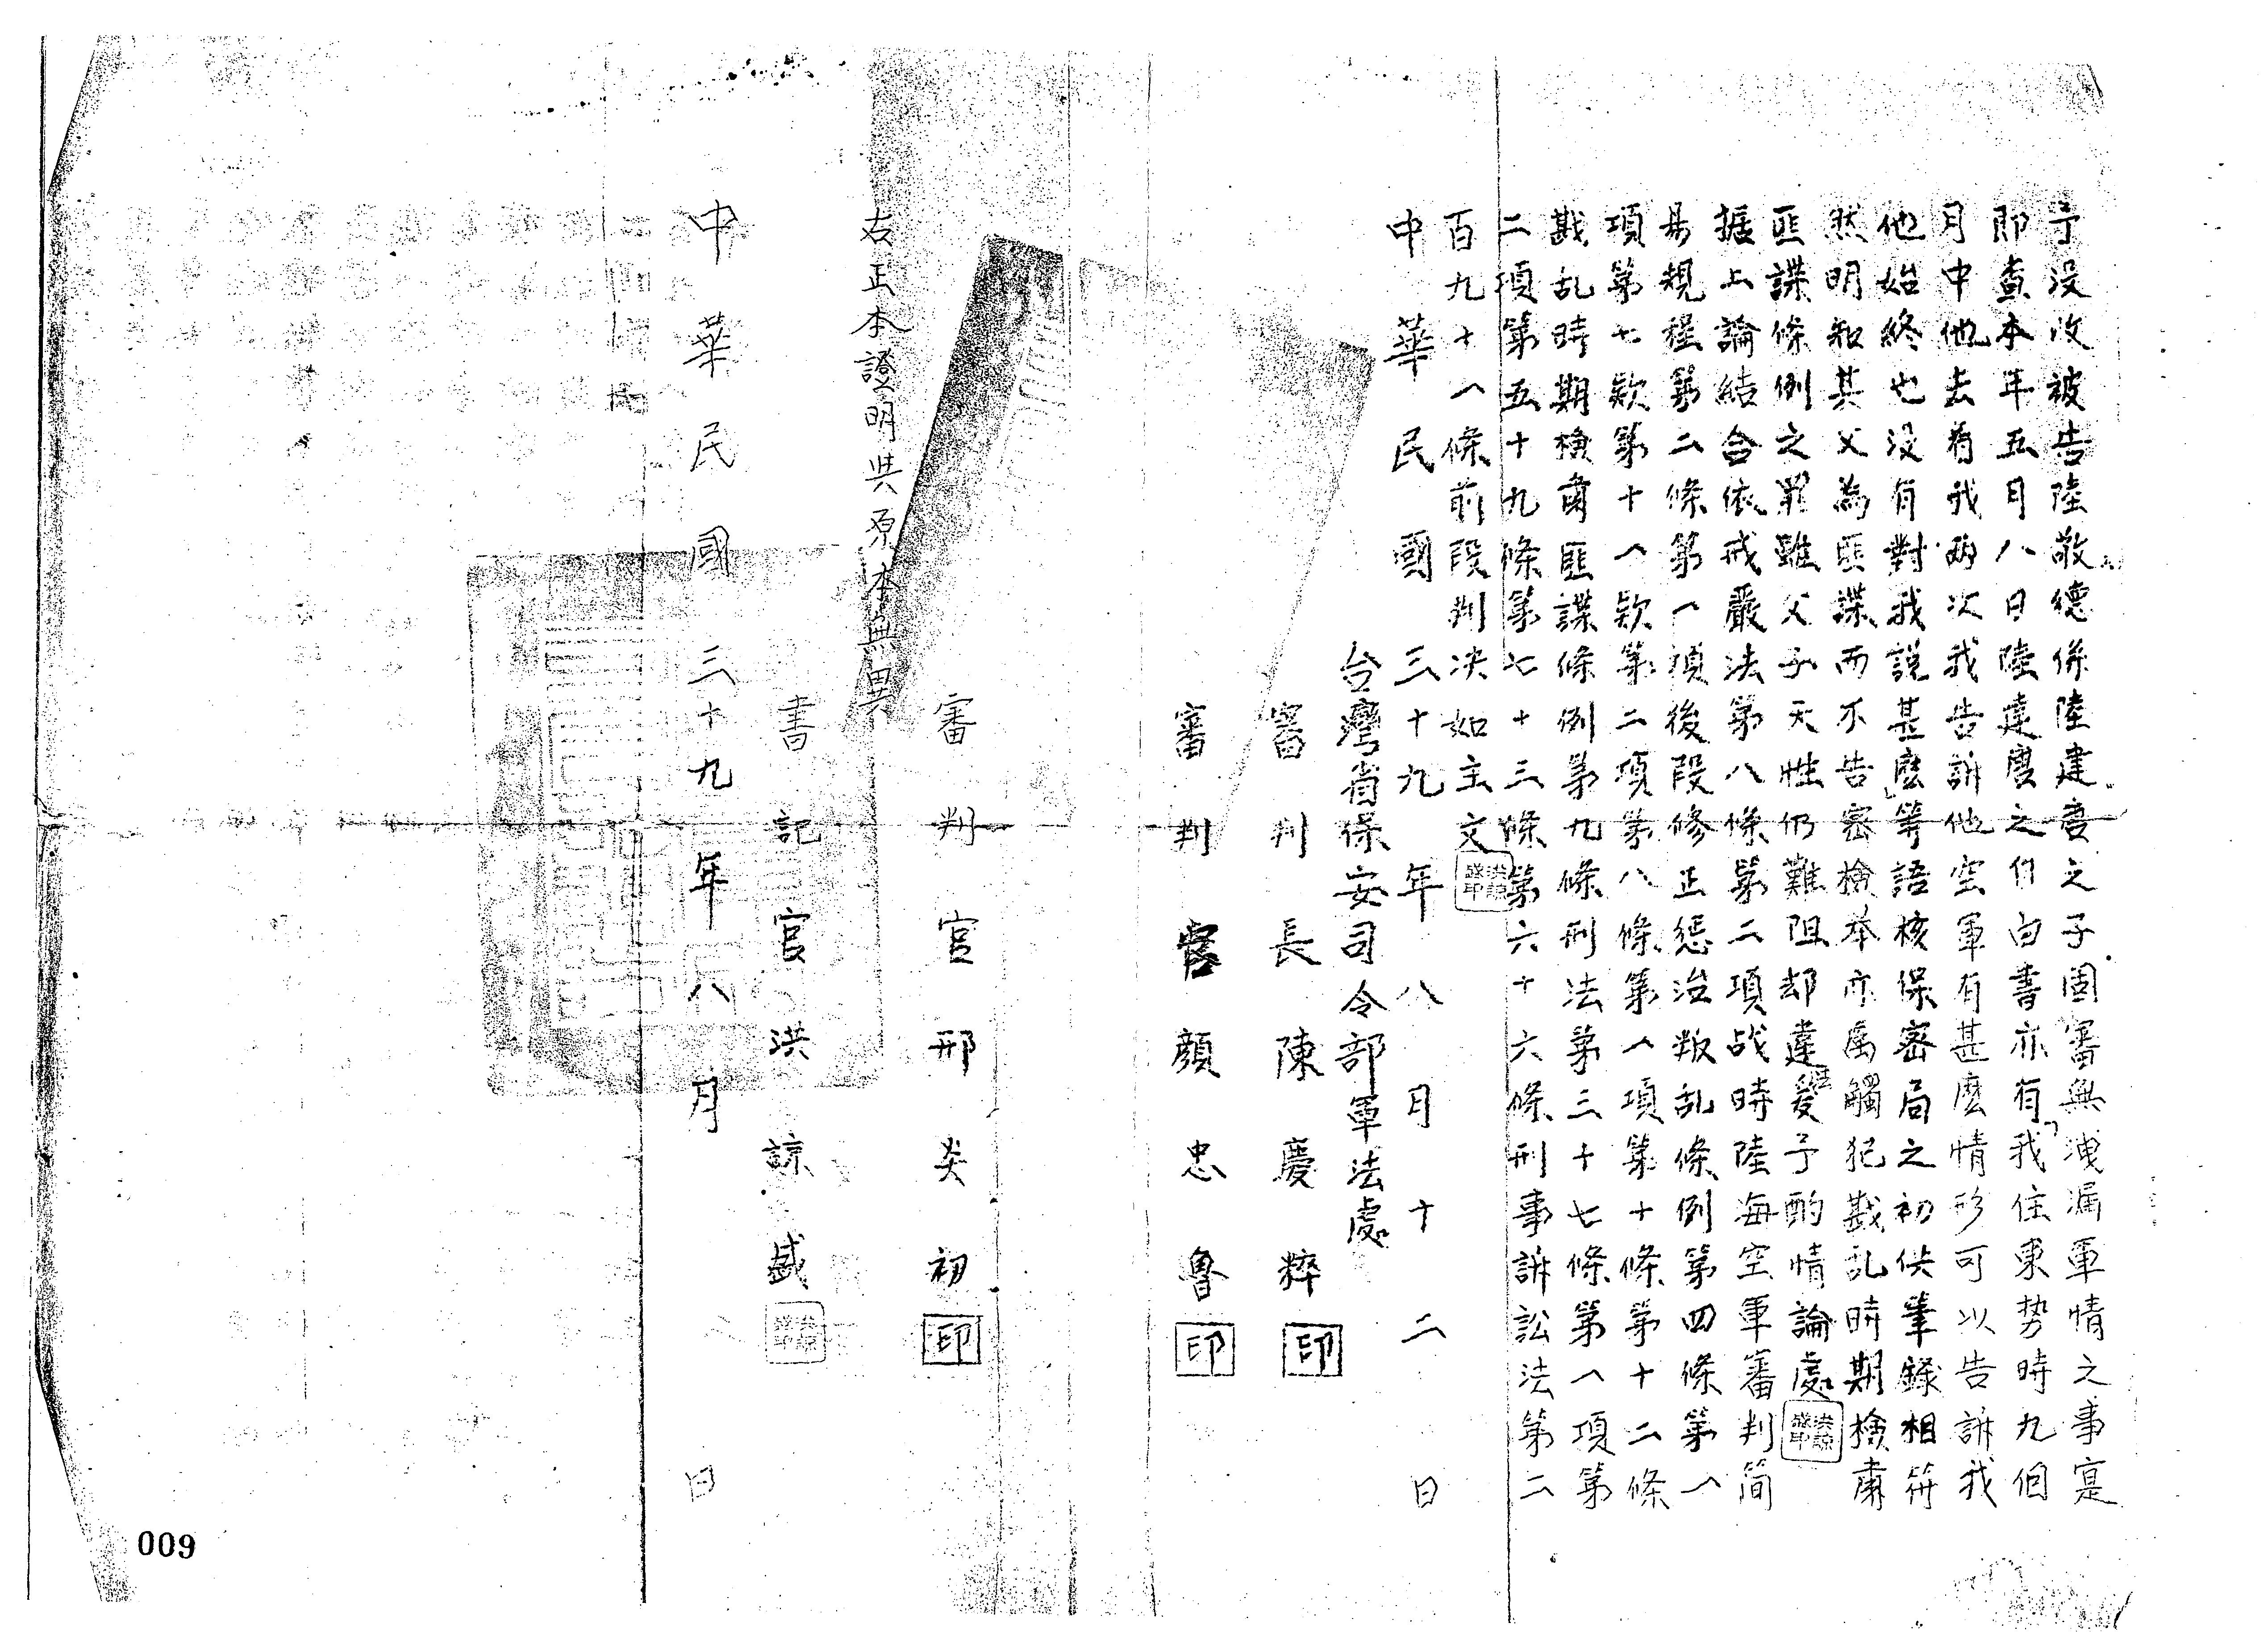 予没收被告陸敬德係陸建慶之子固審無洩漏軍情之事寔
即查本年五月八日陸建慶之自白書亦有我住東勢時九個
月中他去看我兩次我告訴他空軍有甚麼情形可以告訴我
他始終也没有對我說甚麼等語核保密局之初供筆錄相符
然明知其父為匪諜而不告密檢举亦属觸犯戡乱時期檢肅
匪諜條例之罪雖父子天性仍難阻却違爰予酌情論處
据上論結合依戒嚴法第八條第二項战時陸海空軍審判简
易規程第二條第一項後段修正惩治叛乱條例第四條第一
項第七款第十一款第二項第八條第一項第十條第十二條
戡乱時期檢肅匪諜條例第九條刑法第三十七條第一項第
二項第五十九條第七十三條第六十六條刑事訴訟法第二
百九十一條前段判决如主文
中華民國三十九年八月十二日
台灣省保安司令部軍法處
審判長陳慶粹印
審判官顏忠魯印
審判官邢炎初印
右正本證明與原本無異
書記官洪諒盛
中華民國三十九年八月日
009